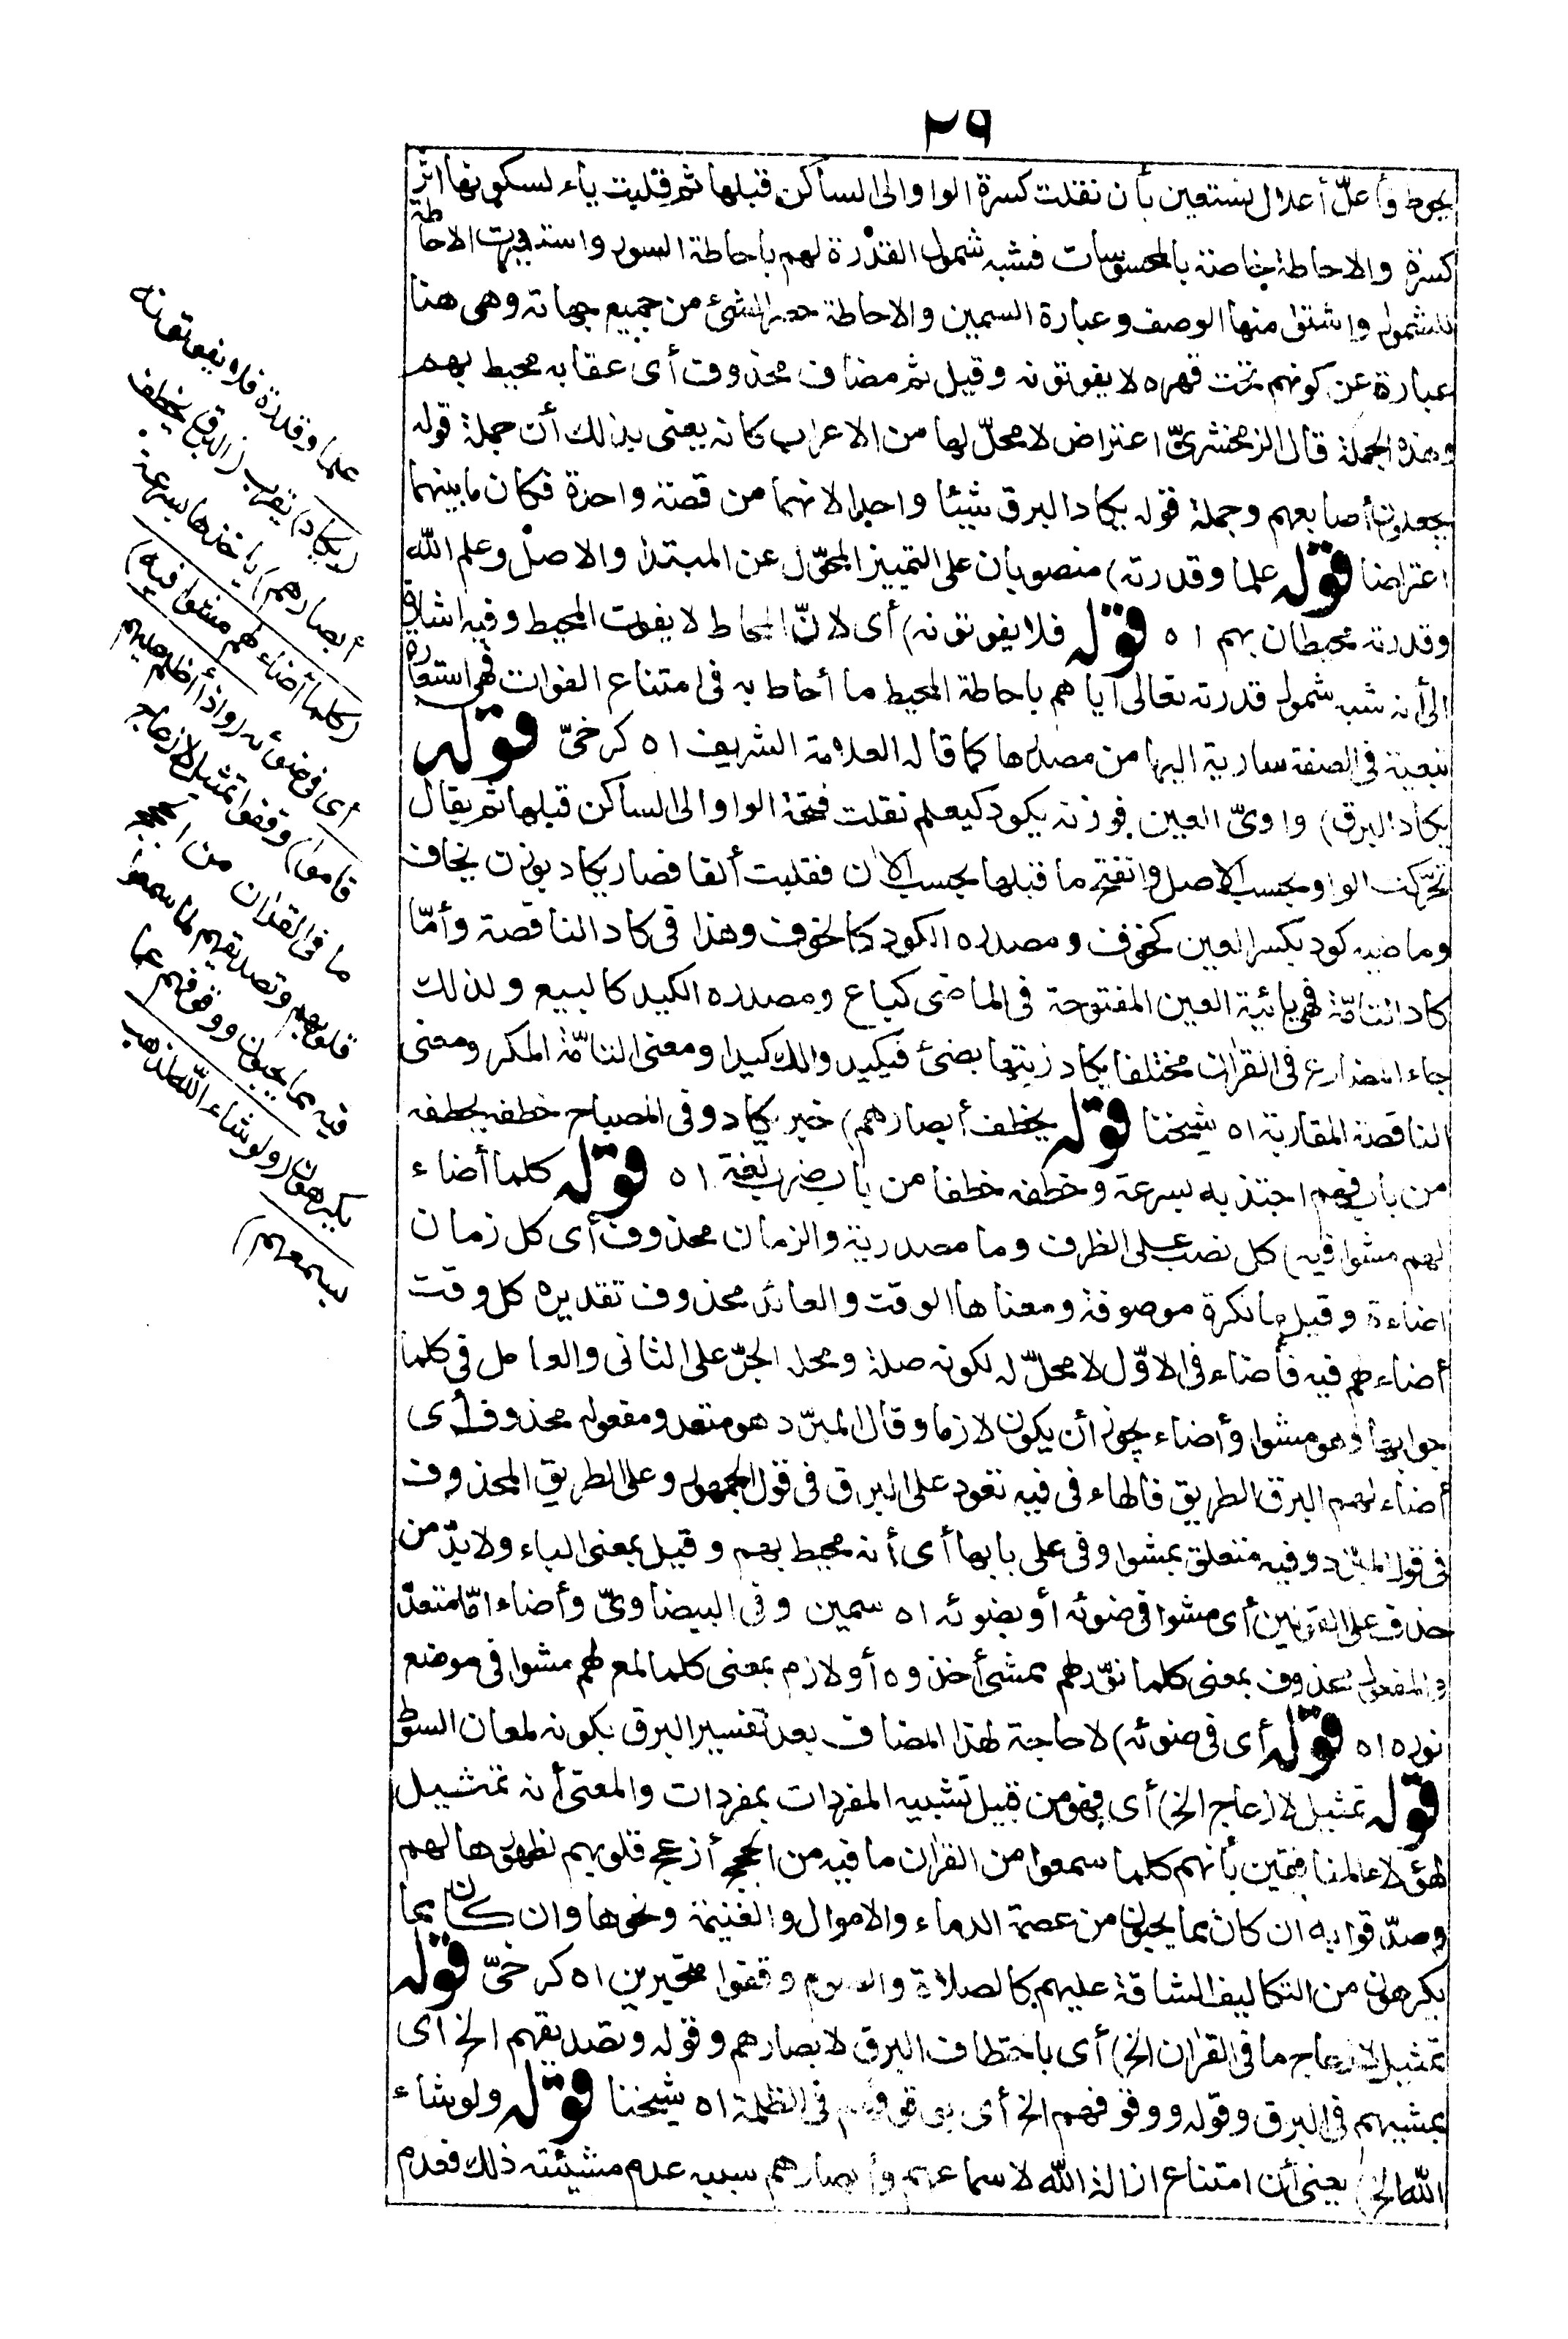 ٢٩
يحوط وأعلّ أعلال نستعين بأن نقلت كسرة الواو الى الساكن قبلها ثم قلبت ياء لسكونها اثر
كسرة والاحاطة خاصة بالمحسوسات فشبه شمول القدرة لهم باحاطة السور واستعيرت الاحاطة
للشمول واشتق منها الوصف وعبارة السمين والاحاطة حصر الشئ من جميع جهاته وهى هنا
عبارة عن كونهم تحت قهره لا يفوتونه وقيل ثم مضاف محذوف أى عقابه محيط بهم
وهذه الجملة قال الزمخشرىّ اعتراض لا محلّ لها من الاعراب كانه يعنى بذلك أن جملة قوله
يجعلون أصابعهم وجملة قوله يكاد البرق شيئا واحدا لانهما من قصة واحدة فكان ما بينهما
اعتراضا قوله علما وقدرته) منصوبان على التمييز المحوّل عن المبتدا والاصل وعلم الله
وقدرته محيطان بهم ا ه قوله فلا يفوتونه) أى لانّ المحاط لا يفوت المحيط وفيه اشارة
الى أنه شبه شمول قدرته تعالى اياهم باحاطة المحيط ما أحاط به فى امتناع الفوات فهى استعارة
تبعية فى الصفة سارية اليها من مصدرها كما قاله العلامة الشريف ا ه كرخىّ قوله
يكاد البرق) واوىّ العين فوزنه يكود كيعلم نقلت فتحة الواو الى الساكن قبلها ثم يقال
تحرّكت الواو بحسب الاصل وانفتح ما قبلها بحسب الآن فقلبت ألفا فصار يكاد بوزن يخاف
وماضيه كود بكسر العين كخوف ومصدره الكود كالخوف وهذا فى كاد الناقصة وأمّا
كاد التامّة فهى يائية العين المفتوحة فى الماضى كباع ومصدره الكيد كالبيع ولذلك
جاء المضارع فى القرآن مختلفا يكاد زيتها يضئ فيكيدوا لك كيدا ومعنى التامّة المكر ومعنى
الناقصة المقاربة ا ه شيخنا قوله يخطف أبصارهم) خبر يكاد وفى المصباح خطفه يخطفه
من باب فهم اجتذبه بسرعة وخطفه خطفا من باب ضرب لغة ا ه قوله كلما أضاء
لهم مشوا فيه) كل نصب على الظرف وما مصدرية والزمان محذوف أى كل زمان
اضاءة وقيل ما نكرة موصوفة ومعناها الوقت والعائد محذوف تقديره كل وقت
أضاء لهم فيه فأضاء فى الاوّل لا محلّ له لكونه صلة ومحله الجرّ على الثانى والعامل فى كلما
جوابها وهو مشوا وأضاء يجوز أن يكون لازما وقال المبرّد هو متعد ومفعوله محذوف أى
أضاء لهم البرق الطريق فالهاء فى فيه تعود على البرق فى قول الجمهور وعلى الطريق المحذوف
فى قول المبرّد وفيه متعلق بمشوا وفى على بابها أى أنه محيط بهم وقيل بمعنى الباء ولا بدّ من
حذف على القولين أى مشوا فى ضوئه أو بضوئه ا ه سمين وفى البيضاوىّ وأضاء امّا متعدّ
والمفعول محذوف بمعنى كلما نوّر لهم ممشى أخذوه أو لازم بمعنى كلما لمع لهم مشوا فى موضع
نوره ا ه قوله أى فى ضوئه) لا حاجة لهذا المضاف بعد تفسير البرق بكونه لمعان السوط
قوله تمثيل لازعاج الخ) أى فهو من قبيل تشبيه المفردات بمفردات والمعنى أنه تمثيل
لهؤلاء المنافقين بأنهم كلما سمعوا من القرآن ما فيه من الحجج أزعج قلوبهم لظهورها لهم
وصدّقوا به ان كان مما يحبون من عصمة الدماء والاموال والغنيمة ونحوها وان كان مما
يكرهون من التكاليف الشاقة عليهم كالصلاة والصوم وقفوا متحيرين ا ه كرخىّ قوله
تمثيل لازعاج ما فى القرآن الخ) أى باختطاف البرق لابصارهم وقوله وتصديقهم الخ أى
بمشيهم فى البرق وقوله ووقوفهم الخ أى بوقوفهم فى الظلمة ا ه شيخنا قوله ولو شاء
الله الخ) يعنى أن امتناع ازالة الله لاسماعهم وأبصارهم سببه عدم مشيئته ذلك فعدم
علما وقدرة فلا يفوتونه
(يكاد) يقرب (البرق يخطف
أبصارهم) يأخذها بسرعة
(كلما أضاء لهم مشوا فيه)
أى فى ضوئه (واذا أظلم عليهم
قاموا) وقفوا تمثيل لازعاج
ما فى القرآن من الحجج
قلوبهم وتصديقهم لما سمعوا
فيه مما يحبون ووقوفهم عما
يكرهون (ولو شاء الله لذهب
بسمعهم)